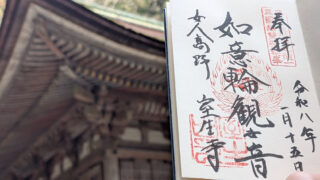 奉拝
令和八年
一月十五日
如意輪観音
女人高野
室生寺